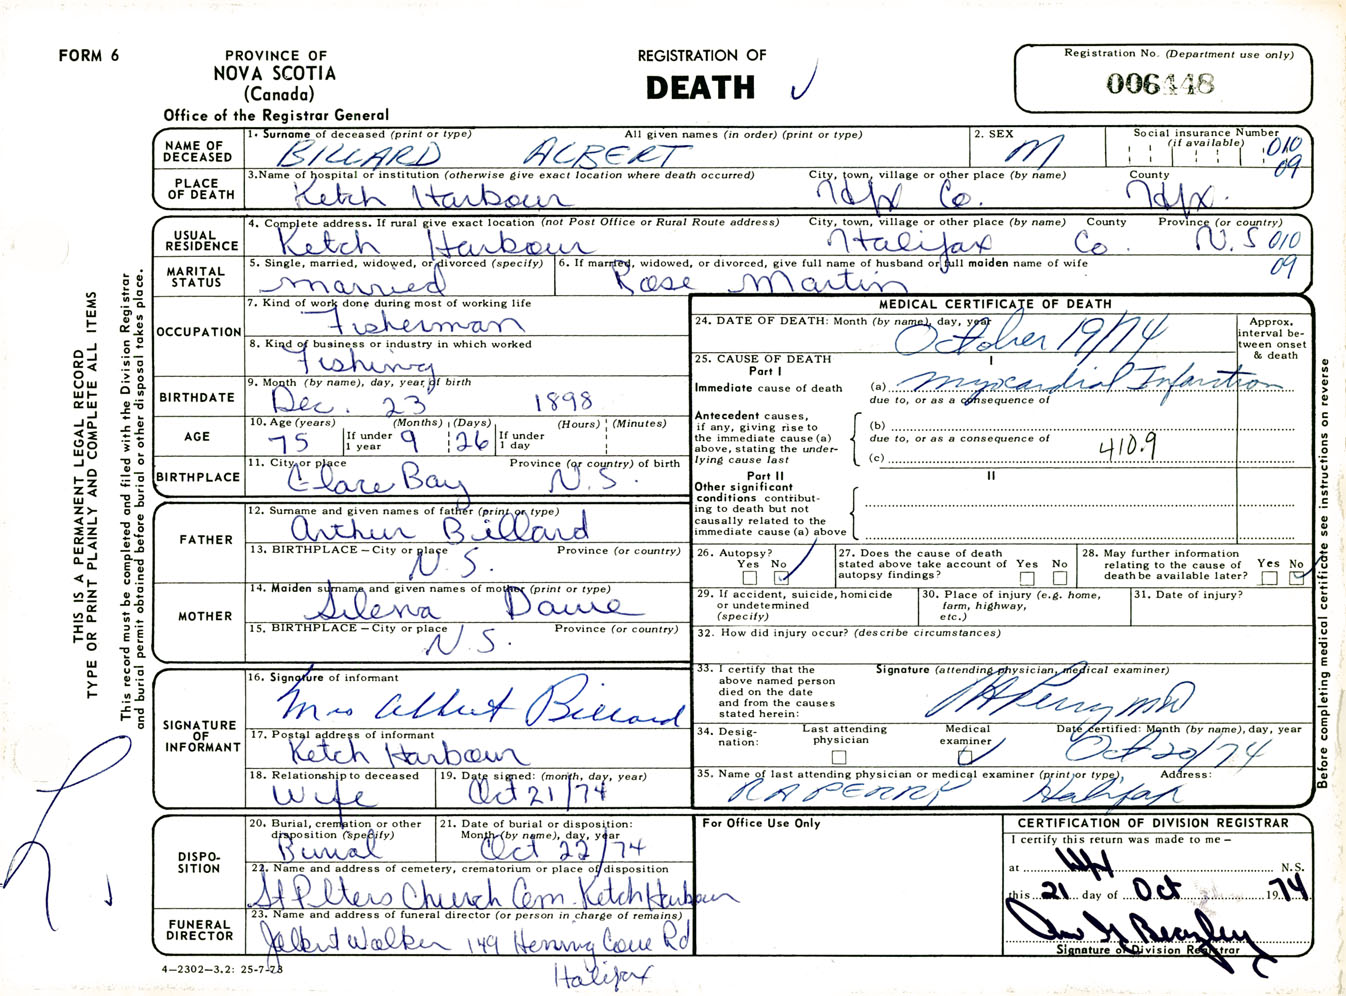 FORM 6
PROVINCE OF
NOVA SCOTIA
(Canada)
Office of the Registrar General
REGISTRATION OF
DEATH
Registration No. (Department use only)
006448
NAME OF DECEASED
1. Surname of deceased (print or type) All given names (in order) (print or type)
BILLARD ALBERT
2. SEX
M
Social insurance Number
(if available)
010
09
PLACE OF DEATH
3. Name of hospital or institution (otherwise give exact location where death occurred) City, town, village or other place (by name) County
Ketch Harbour Hfx Co. Hfx.
USUAL RESIDENCE
4. Complete address. If rural give exact location (not Post Office or Rural Route address) City, town, village or other place (by name) County Province (or country)
Ketch Harbour Halifax Co. N.S 010
09
MARITAL STATUS
5. Single, married, widowed, or divorced (specify)
married
6. If married, widowed, or divorced, give full name of husband or full maiden name of wife
Rose Martin
OCCUPATION
7. Kind of work done during most of working life
Fisherman
8. Kind of business or industry in which worked
Fishing
BIRTHDATE
9. Month (by name), day, year of birth
Dec. 23 1898
AGE
10. Age (years) (Months) (Days) (Hours) (Minutes)
75 If under 1 year 9 26 If under 1 day
BIRTHPLACE
11. City or place Province (or country) of birth
Glace Bay N.S.
FATHER
12. Surname and given names of father (print or type)
Arthur Billard
13. BIRTHPLACE – City or place Province (or country)
N.S.
MOTHER
14. Maiden surname and given names of mother (print or type)
Selena
15. BIRTHPLACE – City or place Province (or country)
N.S.
SIGNATURE OF INFORMANT
16. Signature of informant
Mrs Albert Billard
17. Postal address of informant
Ketch Harbour
18. Relationship to deceased
Wife
19. Date signed: (month, day, year)
Oct 21/74
DISPOSITION
20. Burial, cremation or other disposition (specify)
Burial
21. Date of burial or disposition: Month (by name), day, year
Oct 22/74
22. Name and address of cemetery, crematorium or place of disposition
St Peters Church Cem. Ketch Harbour
FUNERAL DIRECTOR
23. Name and address of funeral director (or person in charge of remains)
Walker 149 Herring Cove Rd
Halifax
4–2302–3.2: 25-7-73
MEDICAL CERTIFICATE OF DEATH
24. DATE OF DEATH: Month (by name), day, year
October 19/74
Approx. interval between onset & death
25. CAUSE OF DEATH
Part I
I
Immediate cause of death
(a) Myocardial Infarction
due to, or as a consequence of
Antecedent causes, if any, giving rise to the immediate cause (a) above, stating the underlying cause last
(b)
due to, or as a consequence of
410.9
(c)
Part II
II
Other significant conditions contributing to death but not causally related to the immediate cause (a) above
26. Autopsy?
Yes No
27. Does the cause of death stated above take account of autopsy findings?
Yes No
28. May further information relating to the cause of death be available later?
Yes No
29. If accident, suicide, homicide or undetermined (specify)
30. Place of injury (e.g. home, farm, highway, etc.)
31. Date of injury?
32. How did injury occur? (describe circumstances)
33. I certify that the above named person died on the date and from the causes stated herein:
Signature (attending physician, medical examiner)
RA Perry MD
34. Designation:
Last attending physician
Medical examiner
Date certified: Month (by name), day, year
Oct 20/74
35. Name of last attending physician or medical examiner (print or type) Address:
RA PERRY Halifax
For Office Use Only
CERTIFICATION OF DIVISION REGISTRAR
I certify this return was made to me –
at Hfx N.S.
this 21 day of Oct 19 74
Signature of Division Registrar
THIS IS A PERMANENT LEGAL RECORD
TYPE OR PRINT PLAINLY AND COMPLETE ALL ITEMS
This record must be completed and filed with the Division Registrar
and burial permit obtained before burial or other disposal takes place.
Before completing medical certificate see instructions on reverse